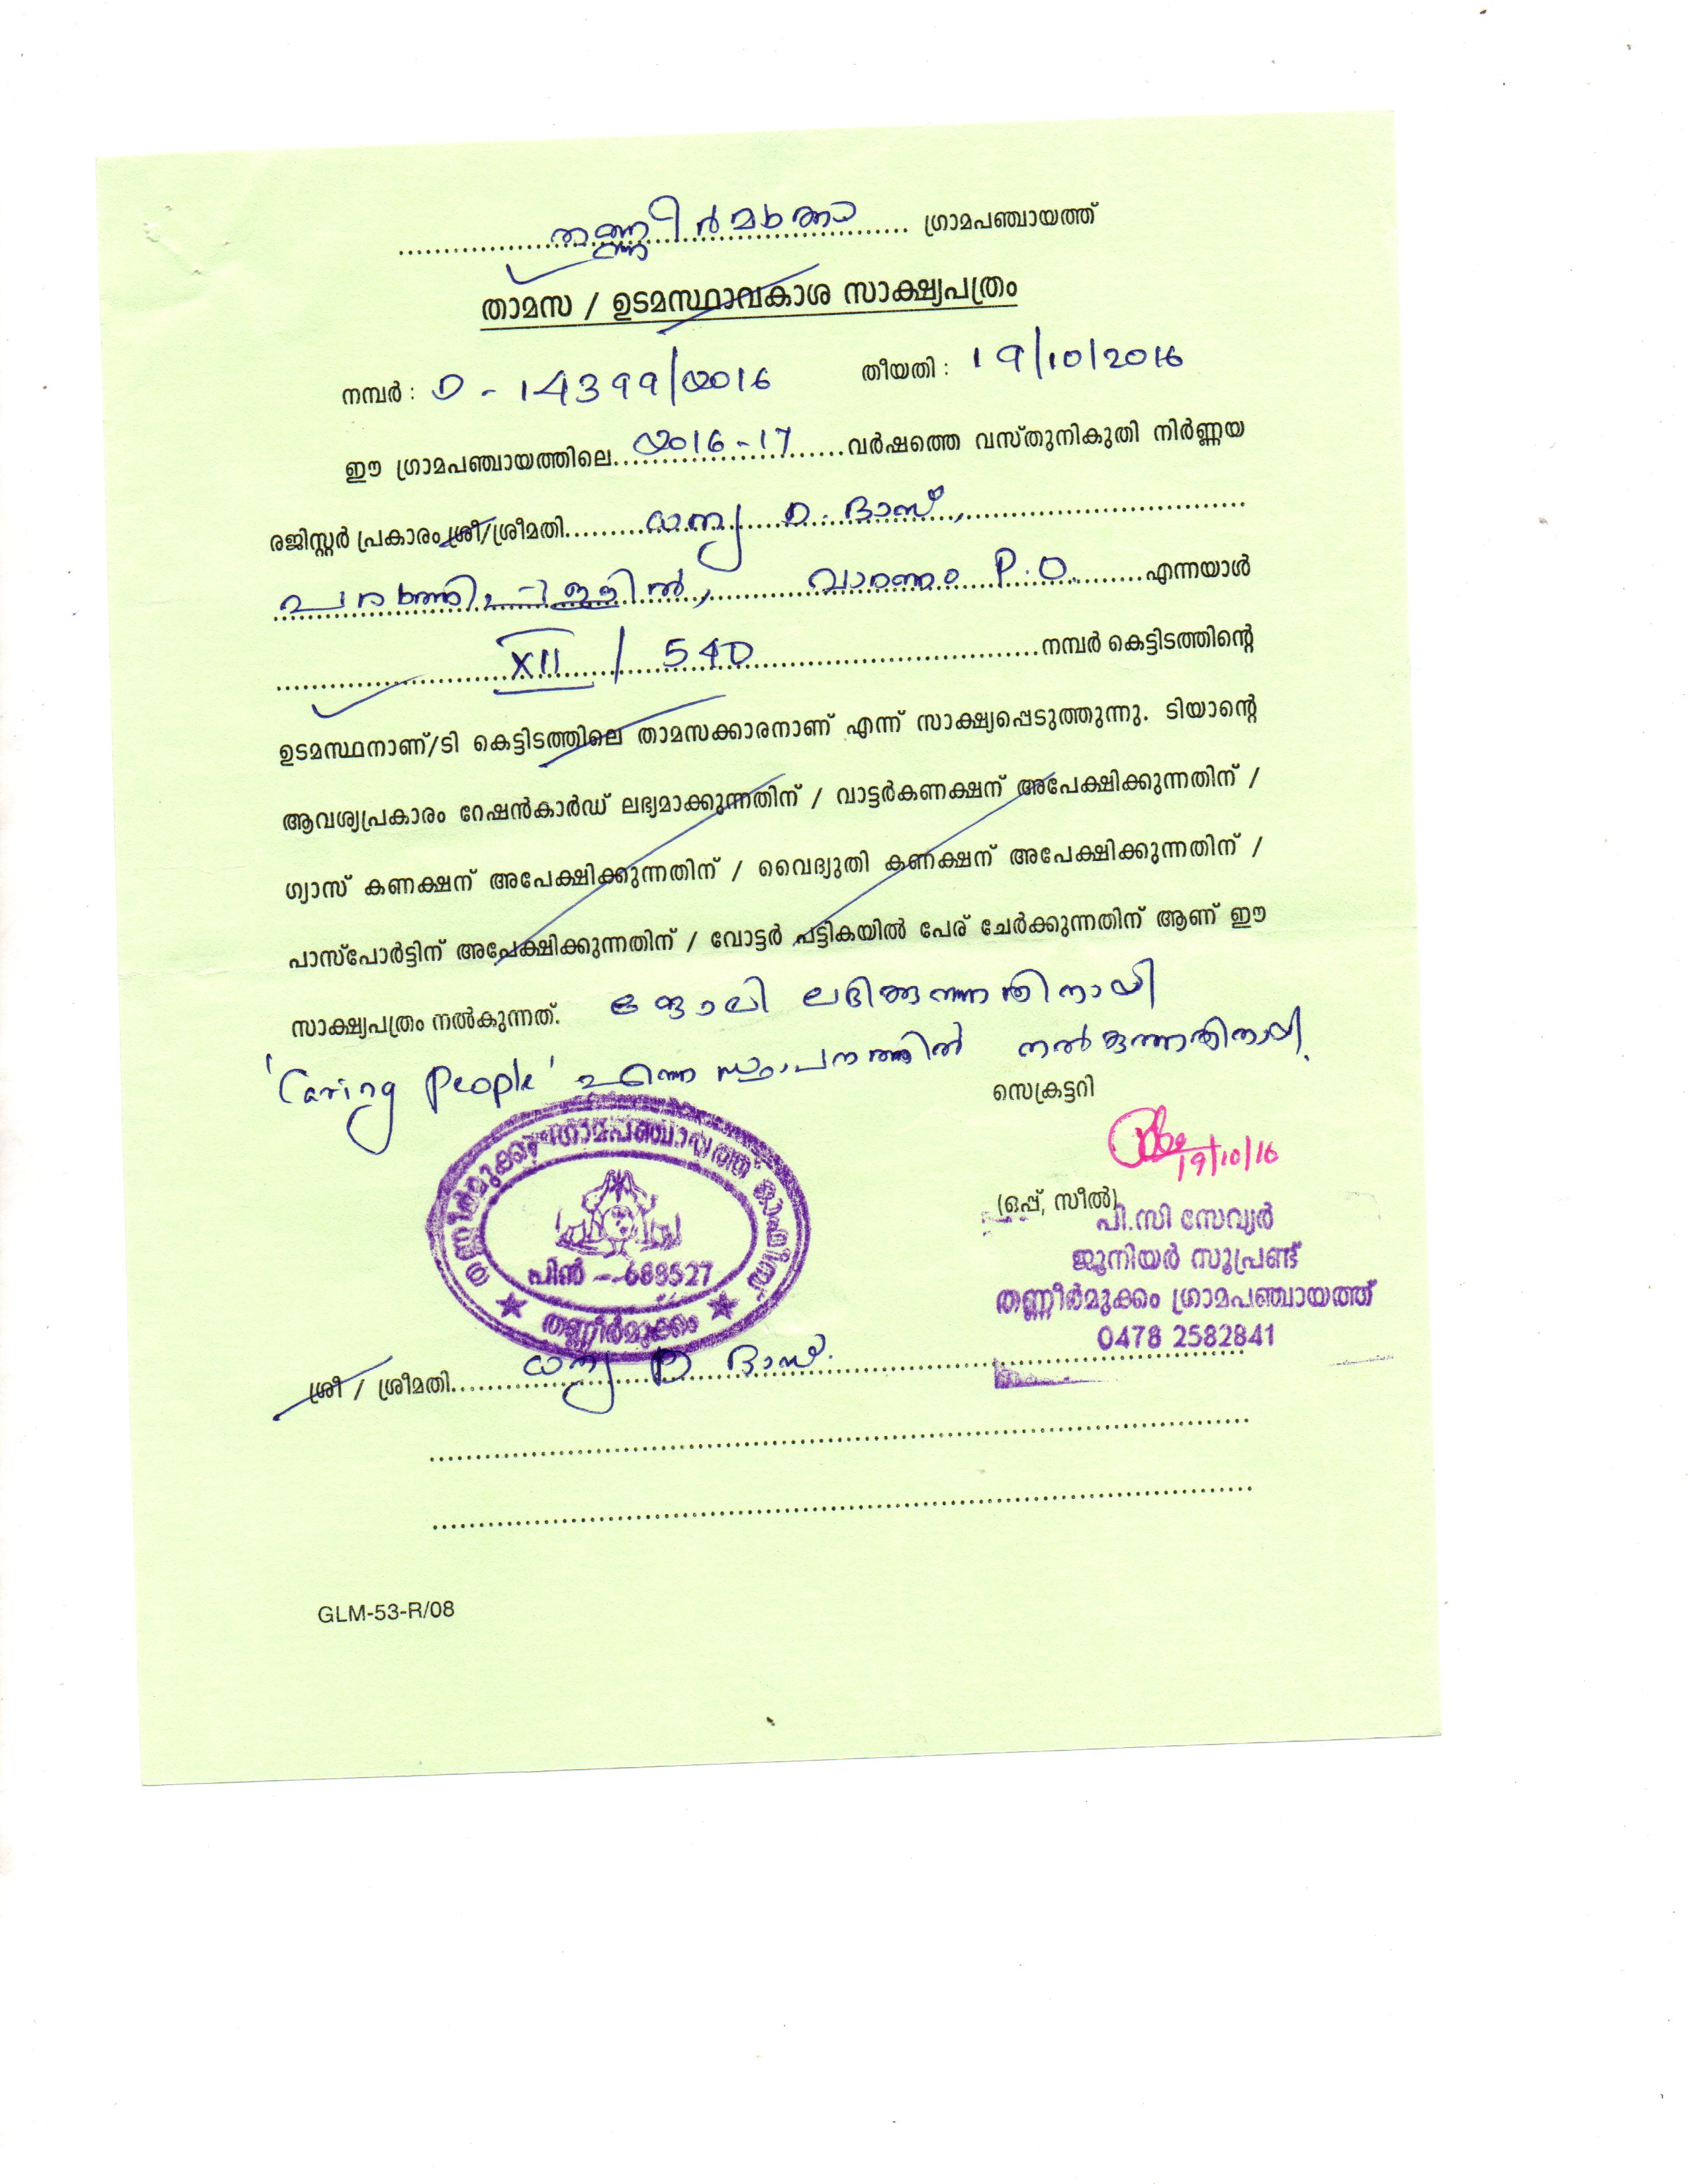 തണ്ണീർമുക്കം ഗ്രാമപഞ്ചായത്ത്
താമസ / ഉടമസ്ഥാവകാശ സാക്ഷ്യപത്രം
നമ്പർ : D - 14399/2016 തീയതി : 19/10/2016
ഈ ഗ്രാമപഞ്ചായത്തിലെ 2016-17 വർഷത്തെ വസ്തുനികുതി നിർണ്ണയ
രജിസ്റ്റർ പ്രകാരം ശ്രീ/ശ്രീമതി ധന്യ D. ദാസ്,
വാരണം P.O. എന്നയാൾ
XII / 540 നമ്പർ കെട്ടിടത്തിന്റെ
ഉടമസ്ഥനാണ്/ടി കെട്ടിടത്തിലെ താമസക്കാരനാണ് എന്ന് സാക്ഷ്യപ്പെടുത്തുന്നു. ടിയാന്റെ
ആവശ്യപ്രകാരം റേഷൻകാർഡ് ലഭ്യമാക്കുന്നതിന് / വാട്ടർകണക്ഷന് അപേക്ഷിക്കുന്നതിന് /
ഗ്യാസ് കണക്ഷന് അപേക്ഷിക്കുന്നതിന് / വൈദ്യുതി കണക്ഷന് അപേക്ഷിക്കുന്നതിന് /
പാസ്പോർട്ടിന് അപേക്ഷിക്കുന്നതിന് / വോട്ടർ പട്ടികയിൽ പേര് ചേർക്കുന്നതിന് ആണ് ഈ
സാക്ഷ്യപത്രം നൽകുന്നത്. ജോലി ലഭിക്കുന്നതിനായി
'Caring People' എന്ന സ്ഥാപനത്തിൽ നൽകുന്നതിനായി.
സെക്രട്ടറി
19/10/16
(ഒപ്പ്, സീൽ)
പി.സി സേവ്യർ
ജൂനിയർ സൂപ്രണ്ട്
തണ്ണീർമുക്കം ഗ്രാമപഞ്ചായത്ത്
0478 2582841
തണ്ണീർമുക്കം ഗ്രാമപഞ്ചായത്ത് ഓഫീസ്
പിൻ - 688527
തണ്ണീർമുക്കം
ശ്രീ / ശ്രീമതി ധന്യ D ദാസ്.
GLM-53-R/08